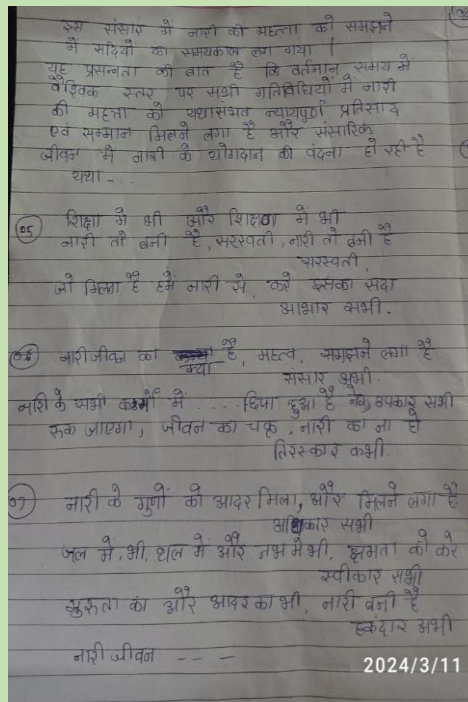 इस संसार में नारी की महत्ता को समझने
में सदियों का समयकाल लग गया ।
यह प्रसन्नता की बात है कि वर्तमान समय में
वैश्विक स्तर पर सभी गतिविधियों में नारी
की महत्ता को यथासंभव न्यायपूर्ण प्रतिसाद
एवं सम्मान मिलने लगा है और संसारिक
जीवन में नारी के योगदान की वंदना हो रही है
यथा - - -
05 शिक्षा में भी और शिक्षण में भी
नारी तो बनी है, सरस्वती, नारी तो बनी है
सरस्वती,
जो मिला है हमें नारी से, करे इसका सदा
आभार सभी.
नारी जीवन का क्या है, महत्व, समझने लगा है
संसार अभी.
नारी के सभी कर्मों में .... छिपा हुआ है उपकार सभी
रुक जाएगा, जीवन का चक्र, नारी का ना हो
तिरस्कार कभी.
07 नारी के गुणों को आदर मिला, और मिलने लगा है
सभी
जल में भी, थल में और नभ में भी, क्षमता को करे
स्वीकार सभी
और आदर का भी, नारी बनी है
हकदार अभी
नारी जीवन - - -
2024/3/11